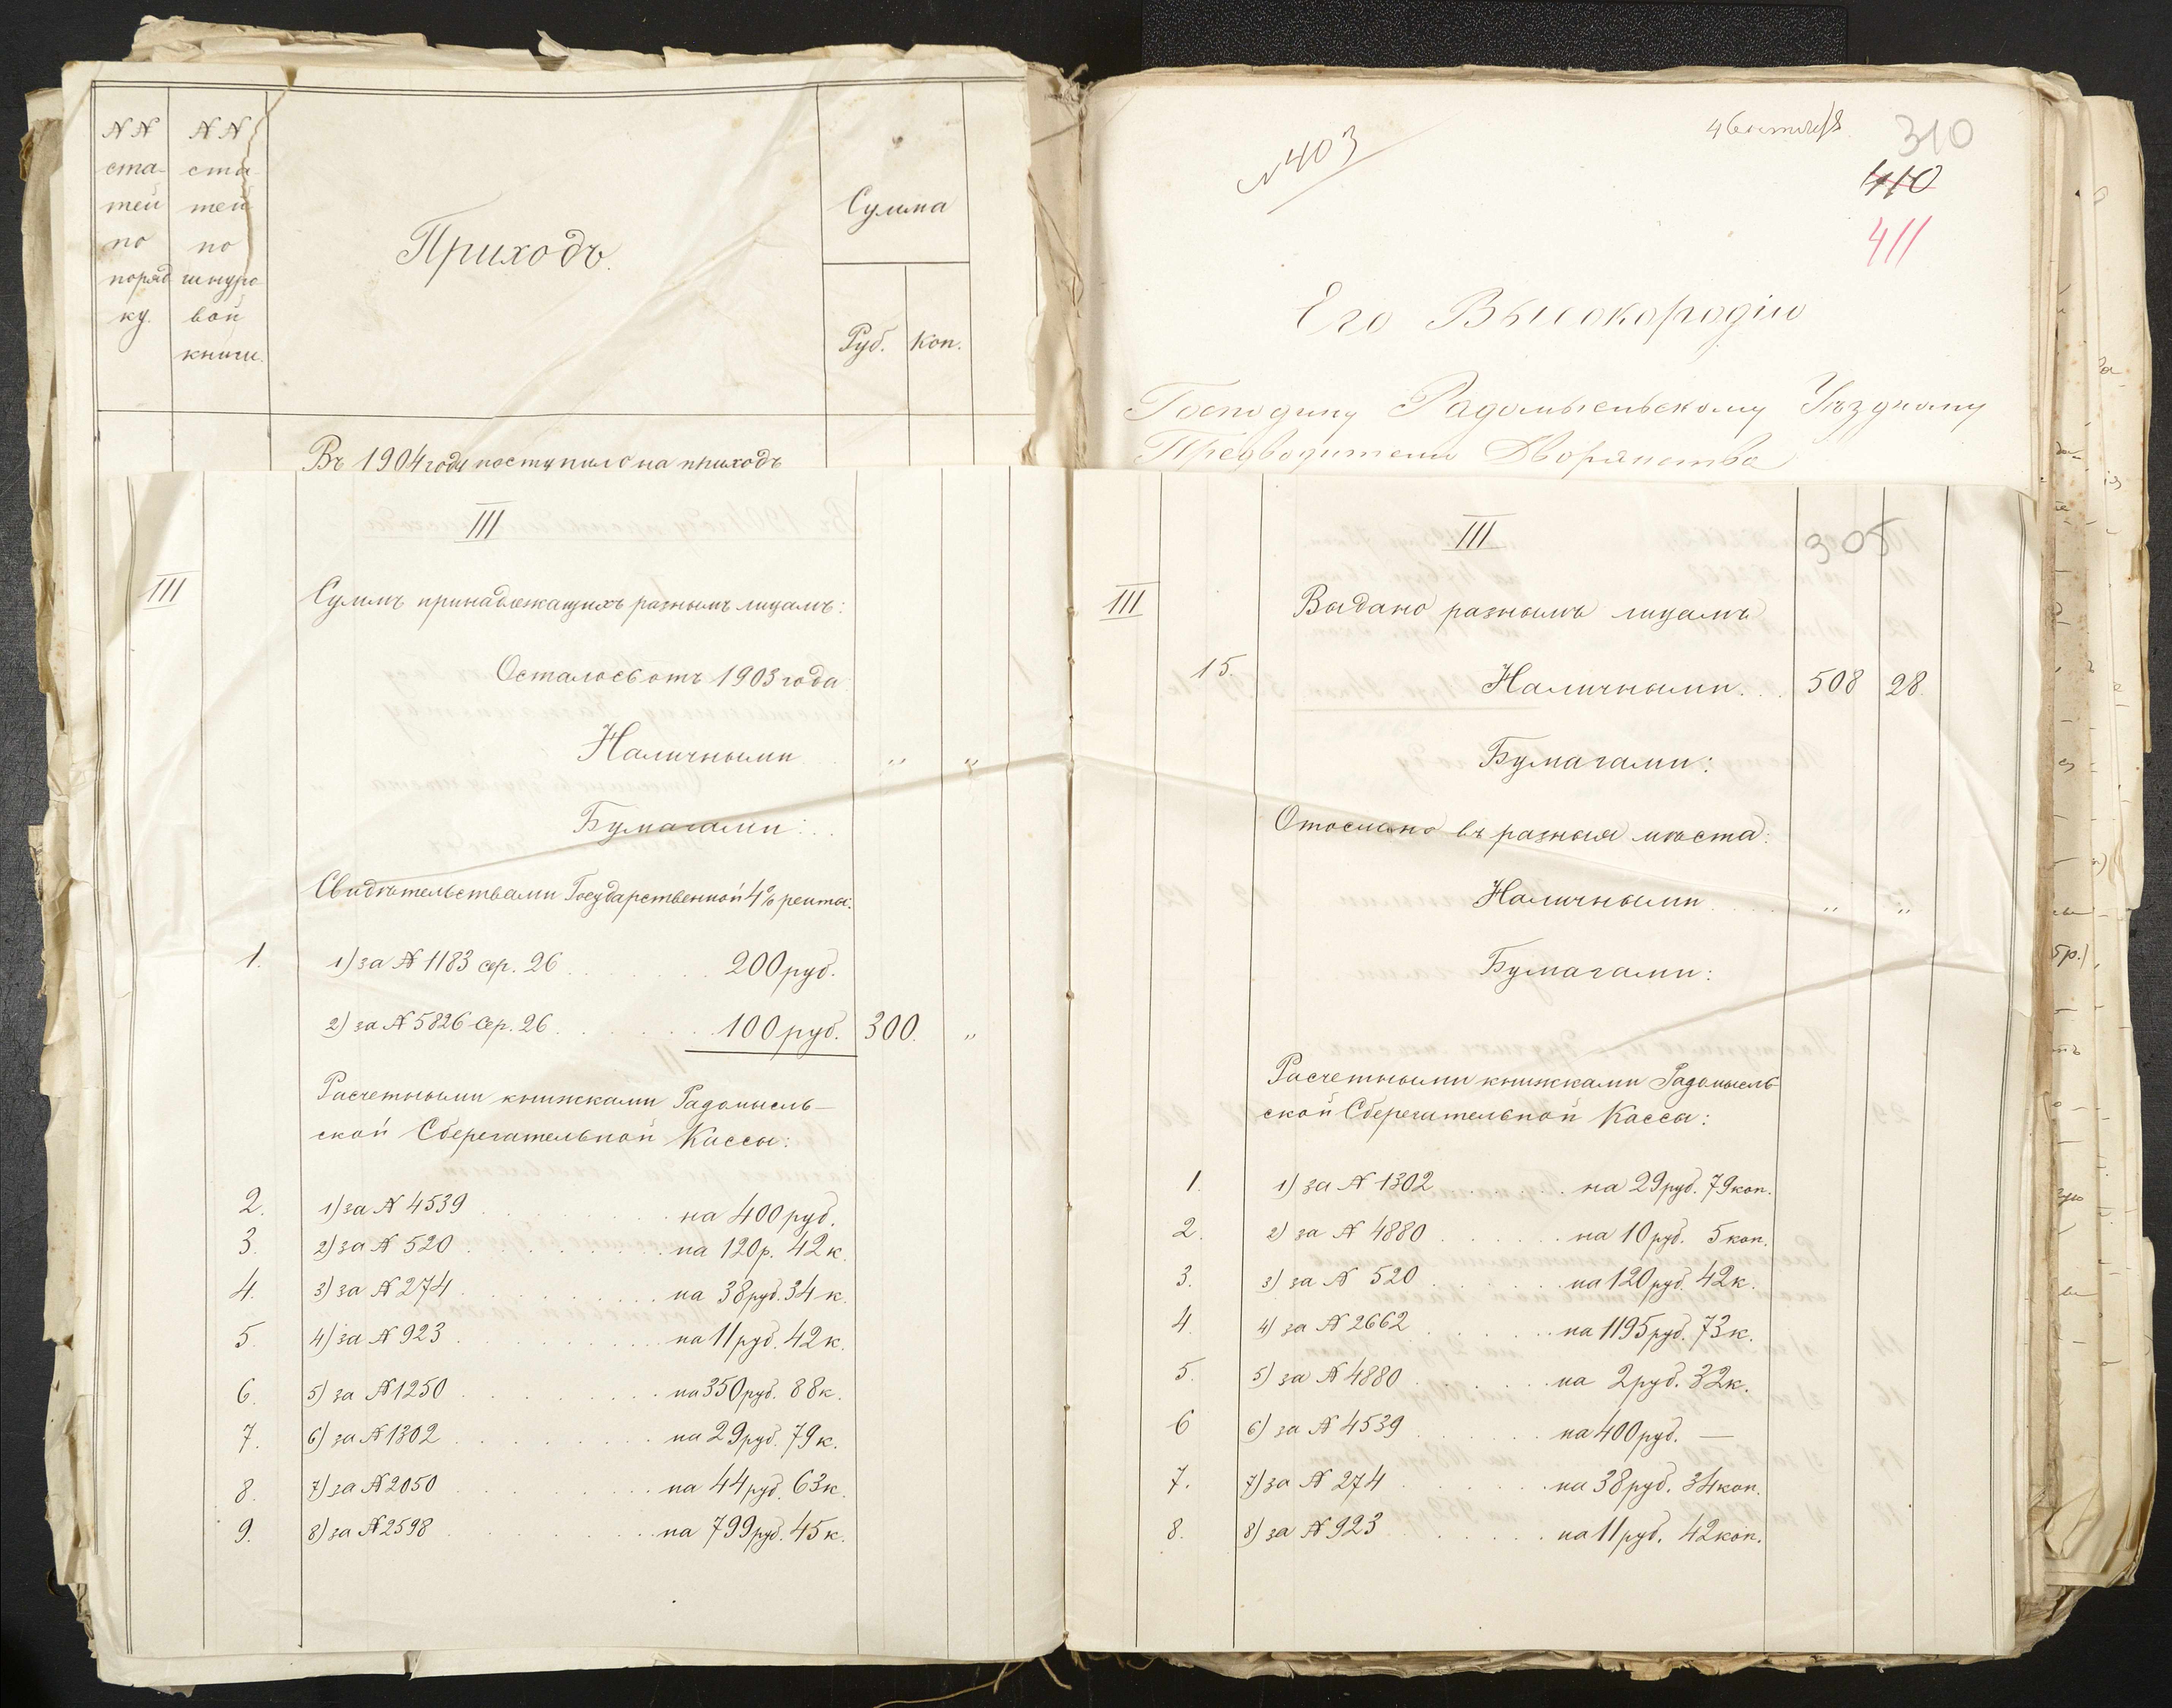 NN ста- тей по поряд ку.
NN ста- тей по шнуро вой книги.
Приходъ.
Сумма
Руб. Коп.
Въ 1904 году поступило на приходъ
III
III
Суммъ принадлежащихъ разнымъ лицамъ:
Осталось отъ 1903 года
Наличными „ „
Бумагами:
Свидѣтельствами Государственной 4% ренты:
1. 1) за N 1183 сер. 26 200 руб.
2) за N 5826 сер. 26 100 руб. 300. „
Расчетными книжками Радомысль-
ской Сберегательной Кассы:
2. 1) за N 4539 на 400 руб.
3. 2) за N 520 на 120 р. 42 к.
4. 3) за N 274 на 38 руб. 34 к.
5. 4) за N 923 на 11 руб. 42 к.
6. 5) за N 1250 на 350 руб. 88 к.
7. 6) за N 1302 на 29 руб. 79 к.
8. 7) за N 2050 на 44 руб. 63 к.
9. 8) за N 2598 на 799 руб. 45 к.
N 403
310
410
411
Его Высокородію
Господину Радомысльскому Уѣздному
Предводителю Дворянства
III
305
III Выдано разнымъ лицамъ
15. Наличными. 508 28.
Бумагами:
Отослано въ разныя мѣста:
Наличными „ „
Бумагами:
Расчетными книжками Радомысль
ской Сберегательной Кассы:
1. 1) за N 1302 на 29 руб. 79 коп.
2. 2) за N 4880 на 10 руб. 5 коп.
3. 3) за N 520 на 120 руб. 42 к.
4. 4) за N 2662 на 1195 руб. 73 к.
5. 5) за N 4880 на 2 руб. 32 к.
6 6) за N 4539 на 400 руб. —
7. 7) за N 274 на 38 руб. 34 коп.
8. 8) за N 923 на 11 руб. 42 коп.